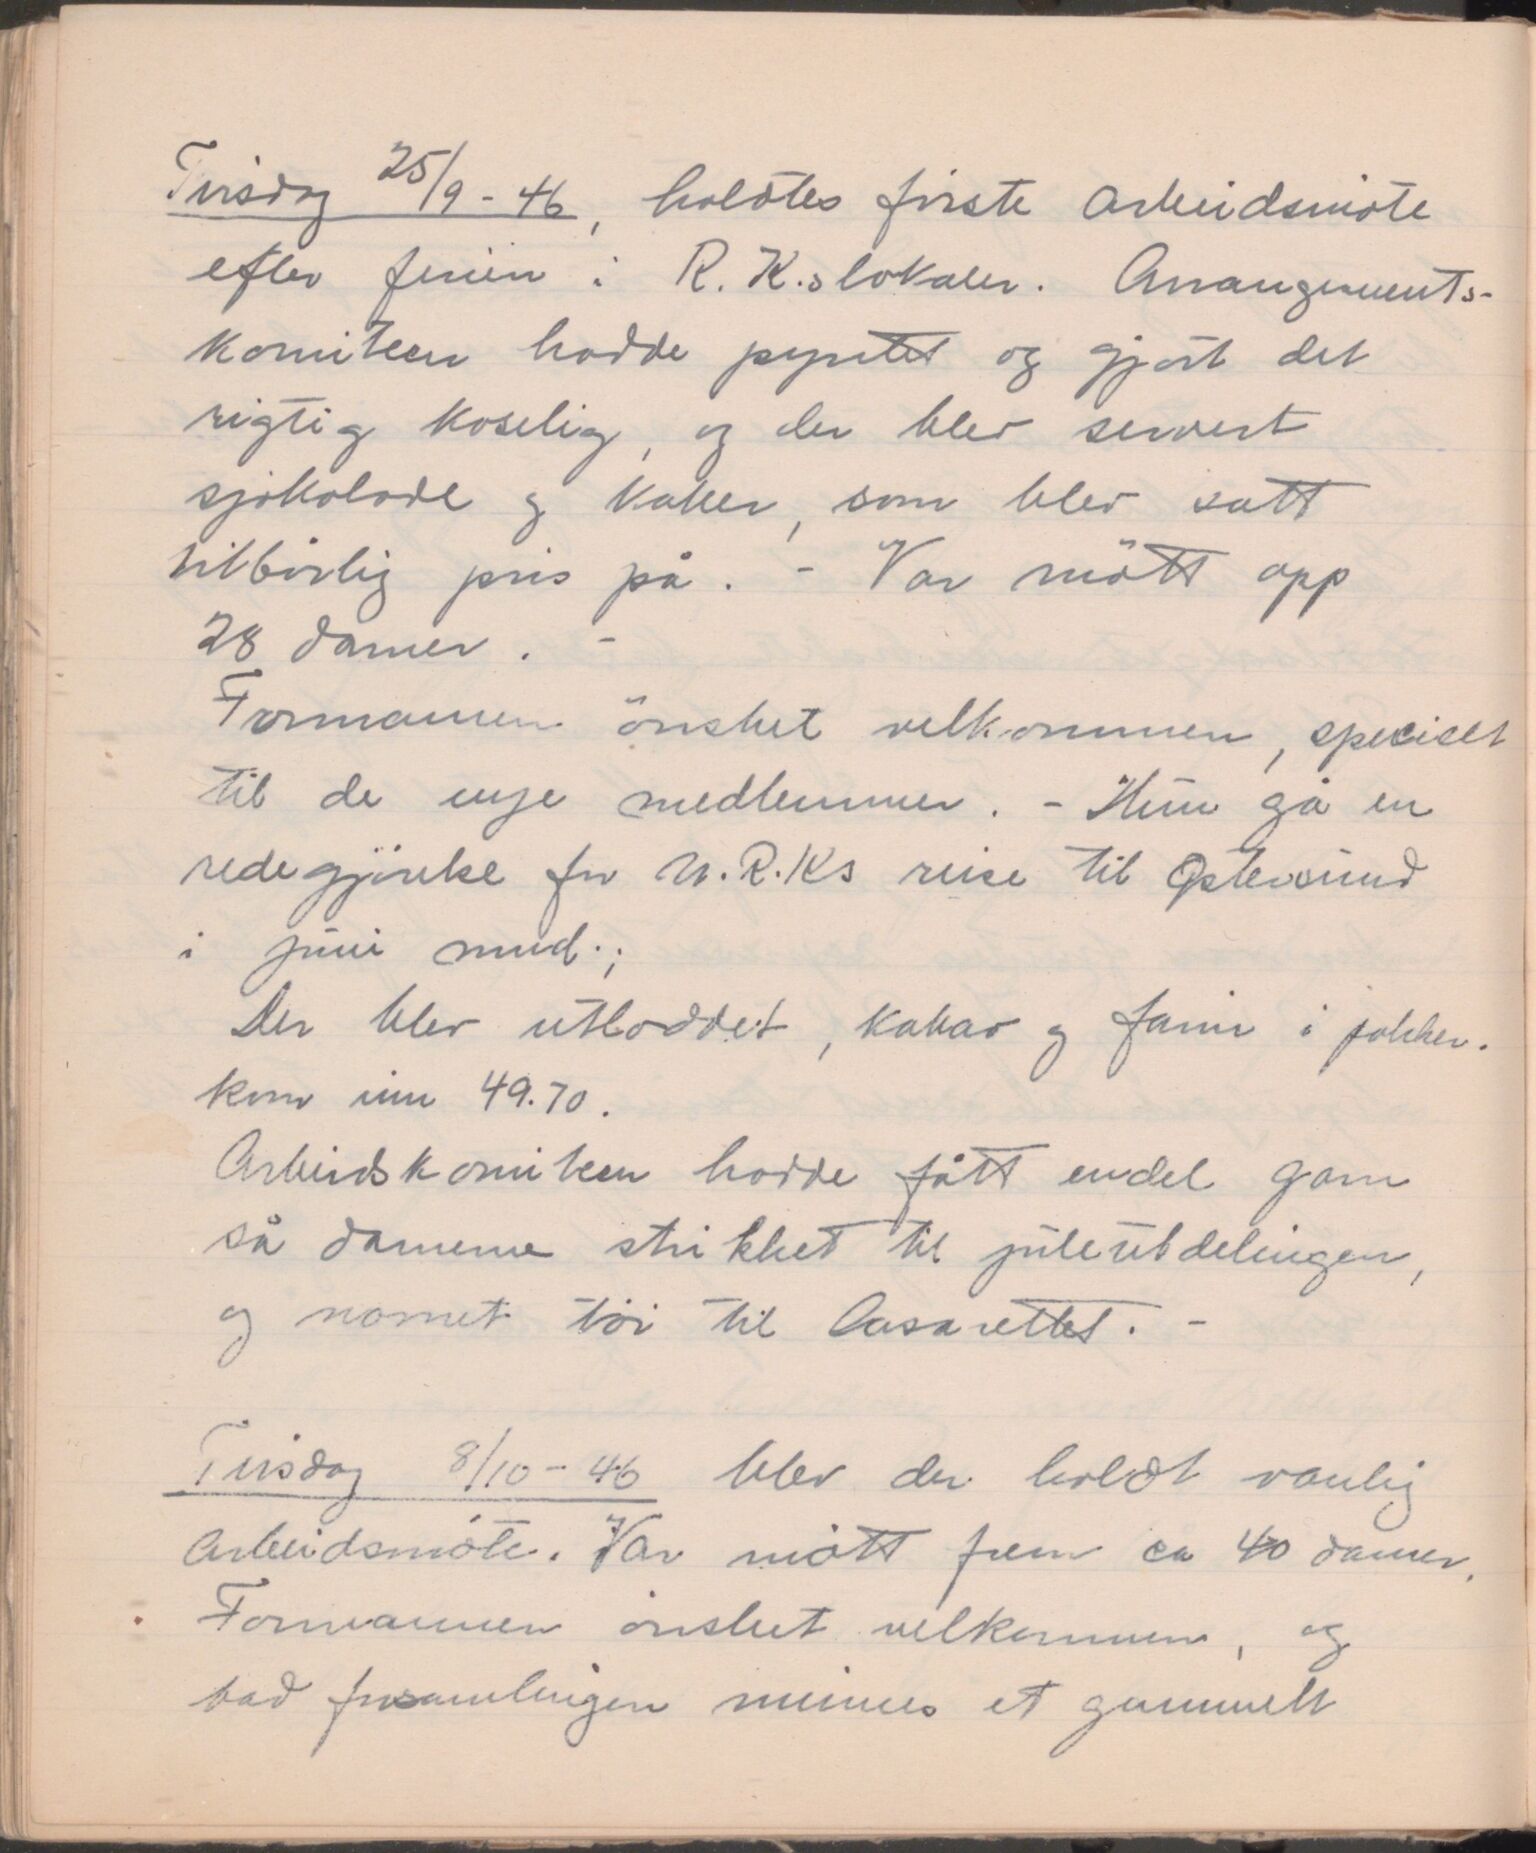 Tirsdag 25/9-46, holdtes första arbeidsmöte
efter ferien i R.K.s lokaler. Arrangements-
komiteen hadde pyntet og gjort det
rigtig koselig, og der blev servert
sjokolade og kaker, som blev satt
tilbörlig pris på. - Var mött opp
28 damer. -
Formannen önsket velkommen, specielt
til de nye medlemmer. - Hun ga en
redegjörelse for N.R.Ks reise til Østersund
i juni mnd.;
Der blev utloddet, kakao og farin i pokker.
kom inn 49.70.
Arbeidskomiteen hadde fått endel garn
så damerne strikket til juleutdelingen,
og navnet töi til Lasarettet. -
Tirsdag 8/10-46 blev der holdt vanlig
arbeidsmöte. Var mött frem ca 40 damer.
Formannen önsket velkommen, og
bad forsamlingen minnes et gammelt